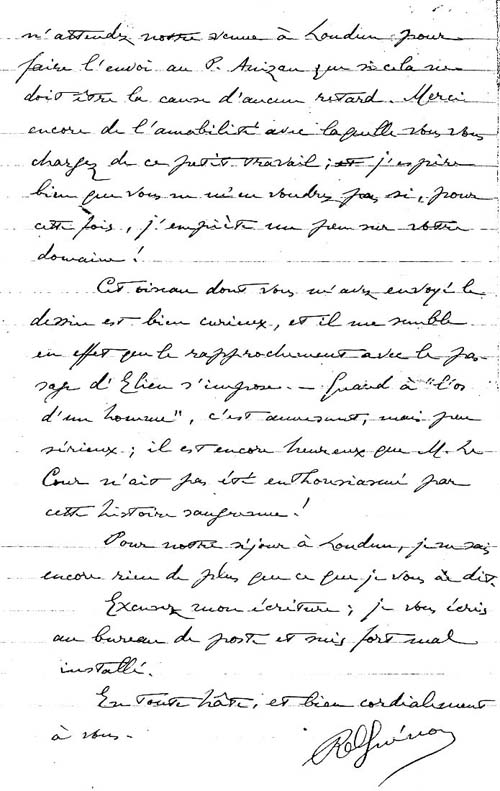 n'attendez notre venue à Loudun pour
faire l'envoi au P. Anizan que si cela ne
doit être la cause d'aucun retard. Merci
encore de l'amabilité avec laquelle vous vous
chargez de ce petit travail ; j'espère
bien que vous ne m'en voudrez pas si, pour
cette fois, j'empiète un peu sur votre
domaine !
Cet oiseau dont vous m'avez envoyé le
dessin est bien curieux, et il me semble
en effet que le rapprochement avec le pas-
sage d'Elien s'impose. — Quand à "l'os
d'un homme", c'est amusant, mais peu
sérieux ; il est encore heureux que M. Le
Cour n'ait pas été enthousiasmé par
cette histoire saugrenue !
Pour notre séjour à Loudun, je ne sais
encore rien de plus que ce que je vous ai dit.
Excusez mon écriture ; je vous écris
au bureau de poste et suis fort mal
installé.
En toute hâte, et bien cordialement
à vous.
R Guénon